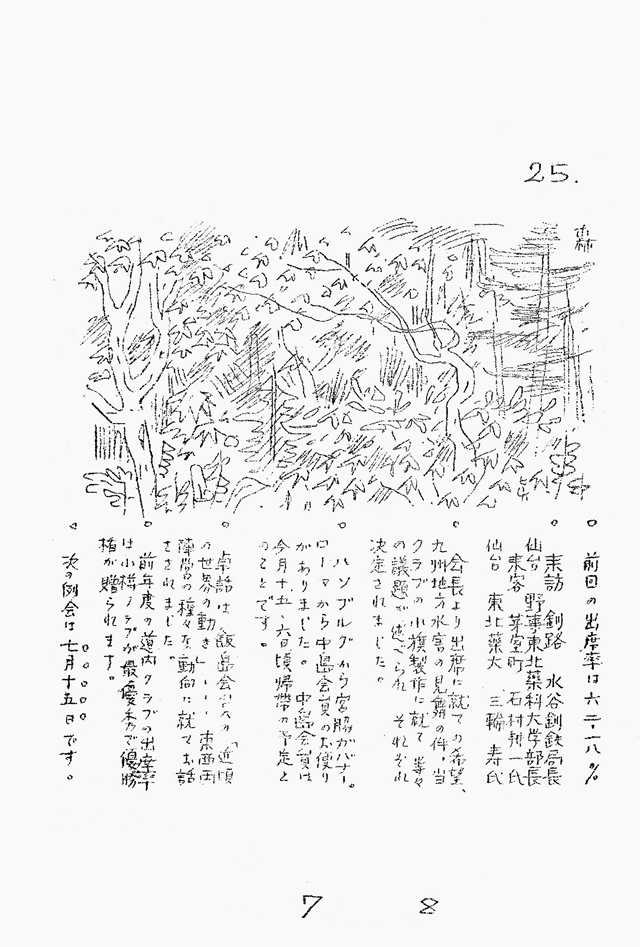 25.
森
○ 前回の出席率は六二・一八%
○ 来訪 釧路 水谷釧鉄局長
仙台 野事東北薬科大学部長
来客 芽室町 石村耕一氏
仙台 東北薬大 三輪 寿氏
○ 会長より出席に就ての希望、
九州地方水害の見舞の件、当
クラブの小旗製作に就て 等々
の議題が述べられ それぞれ
決定されました。
○ ハンブルグから宮脇がバナー。
ローマから中島会員のお便り
がありました。 中島会員は
今月十五、六日頃帰帯の予定と
のことです。
○ 卓話は飯島会員の「近頃
の世界の動き」・・・東西両
陣営の種々な動向に就てお話
されました。
○ 前年度の道内クラブの出席率
は小樽クラブが最優秀で優勝
楯が贈られます。
○ 次の例会は七月十五日です。
7 8